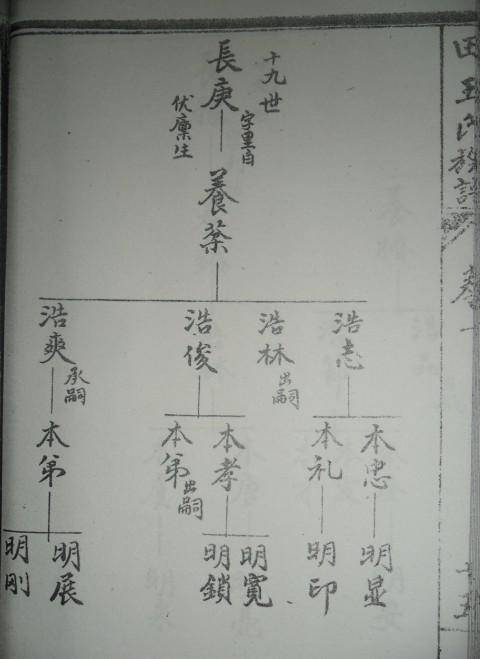 十九世
長庚
字里白
伏廩生
養榮
浩志
浩林
出嗣
浩俊
浩爽
承嗣
本忠
本礼
本孝
本弟
出嗣
本弟
明显
明印
明寬
明鎖
明展
明剛